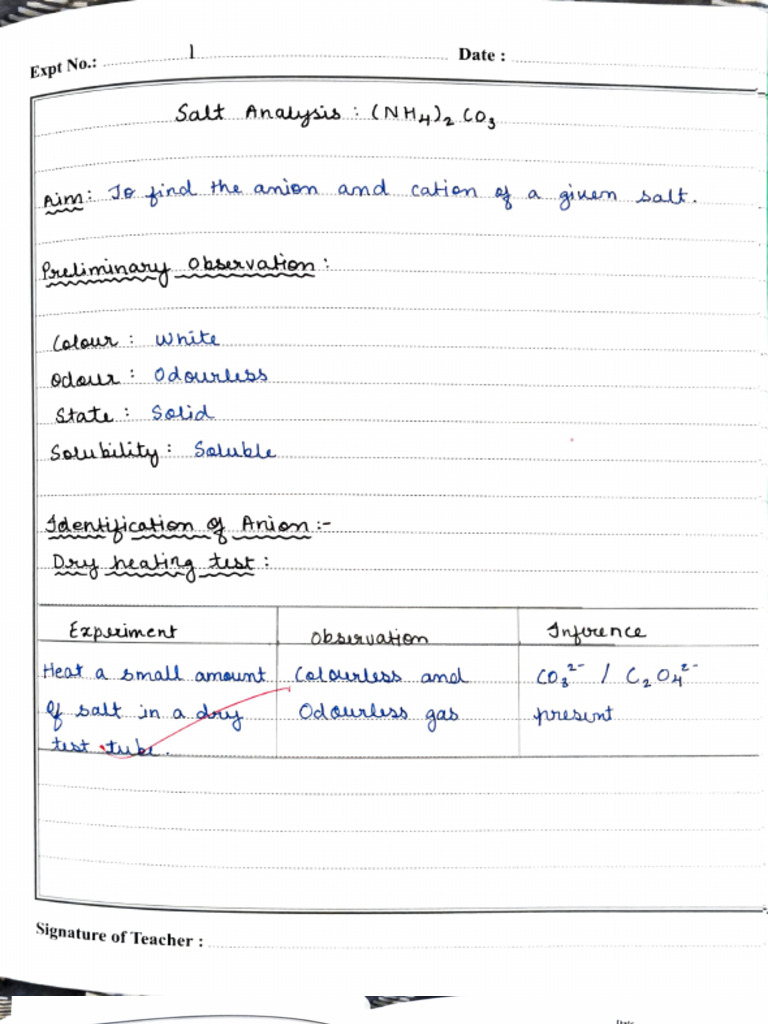 Expt No.: 1 Date :
Salt Analysis : (NH₄)₂ CO₃
Aim : To find the anion and cation of a given salt.
Preliminary Observation :
Colour : White
Odour : Odourless
State : Solid
Solubility : Soluble
Identification of Anion :-
Dry heating test :
Experiment Observation Inference
Heat a small amount Colourless and CO₃²⁻ / C₂O₄²⁻
of salt in a dry Odourless gas present
test tube.
Signature of Teacher :
Date